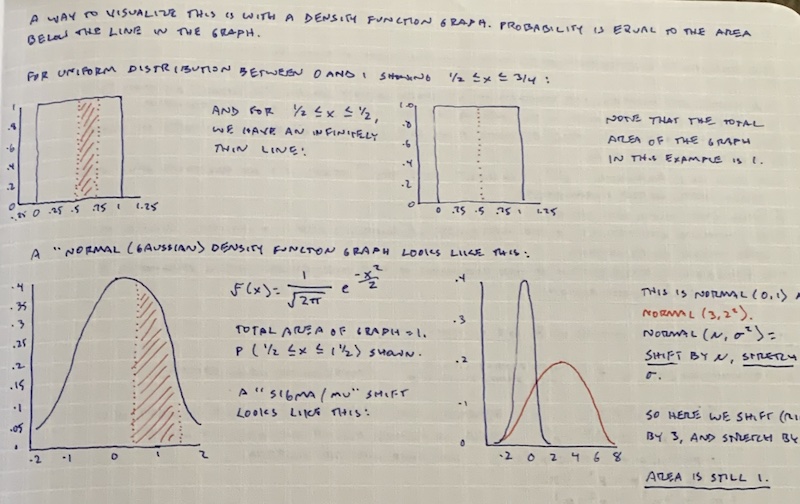 A WAY TO VISUALIZE THIS IS WITH A DENSITY FUNCTION GRAPH. PROBABILITY IS EQUAL TO THE AREA
BELOW THE LINE IN THE GRAPH.
FOR UNIFORM DISTRIBUTION BETWEEN 0 AND 1 SHOWING 1/2 ≤ X ≤ 3/4 :
1
.8
.6
.4
.2
0
-.25 0 .25 .5 .75 1 1.25
AND FOR 1/2 ≤ X ≤ 1/2,
WE HAVE AN INFINITELY
THIN LINE:
1.0
.8
.6
.4
.2
0 .25 .5 .75 1 1.25
NOTE THAT THE TOTAL
AREA OF THE GRAPH
IN THIS EXAMPLE IS 1.
A "NORMAL (GAUSSIAN) DENSITY FUNCTION GRAPH LOOKS LIKE THIS:
.4
.35
.3
.25
.2
.15
.1
.05
0
-2 -1 0 1 2
f(x) = 1/√2π e^(-x²/2)
TOTAL AREA OF GRAPH = 1.
P (1/2 ≤ X ≤ 1 1/2) SHOWN.
A "SIGMA/MU" SHIFT
LOOKS LIKE THIS:
.4
.3
.2
.1
0
-2 0 2 4 6 8
THIS IS NORMAL (0,1)
NORMAL (3,2²).
NORMAL (μ, σ²) =
SHIFT BY μ, STRETCH
σ.
SO HERE WE SHIFT
BY 3, AND STRETCH BY
AREA IS STILL 1.